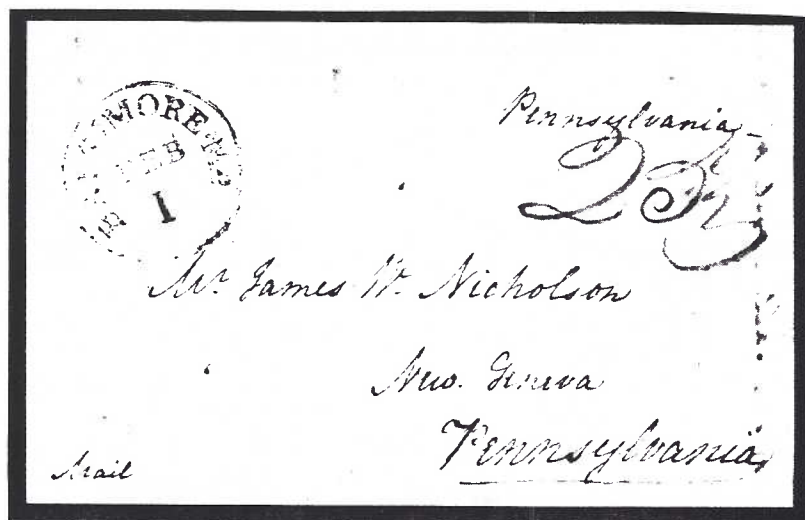 BALTIMORE MD
FEB
1
Pennsylvania
25
Mr. James W. Nicholson
New. Geneva
Pennsylvania,
Mail